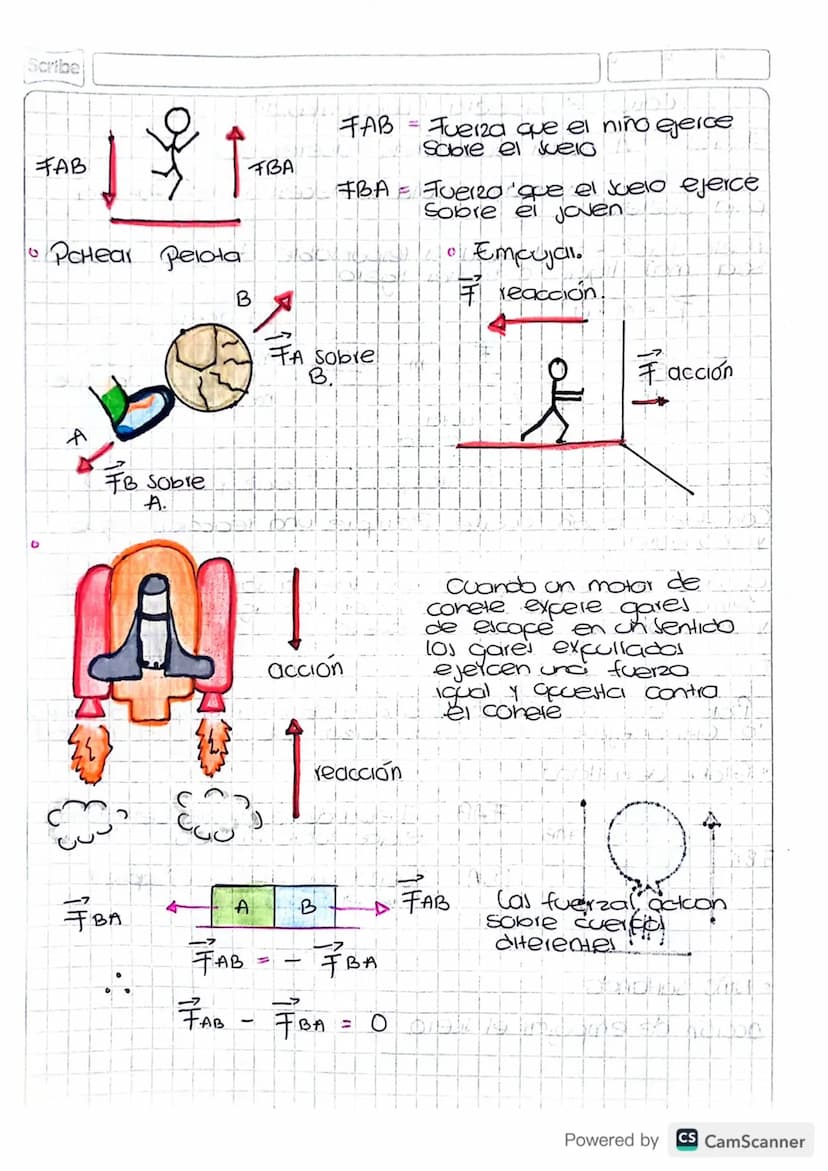 Scribe
FAB
FBA
FAB = Fuerza que el niño ejerce
sobre el suelo
FBA = Fuerza que el suelo ejerce
sobre el joven
Patear Pelota
B
FA sobre
B.
A
FB sobre
A.
Empujar.
F reacción.
F acción
acción
reacción
Cuando un motor de
cohete expele gases
de escape en un sentido
los gases expulsados
ejercen una fuerza
igual y opuesta contra
el cohete
FBA
A B
FAB
FAB = - FBA
∴
FAB - FBA = 0
Las fuerzas actúan
sobre cuerpos
diferentes
Powered by CS CamScanner